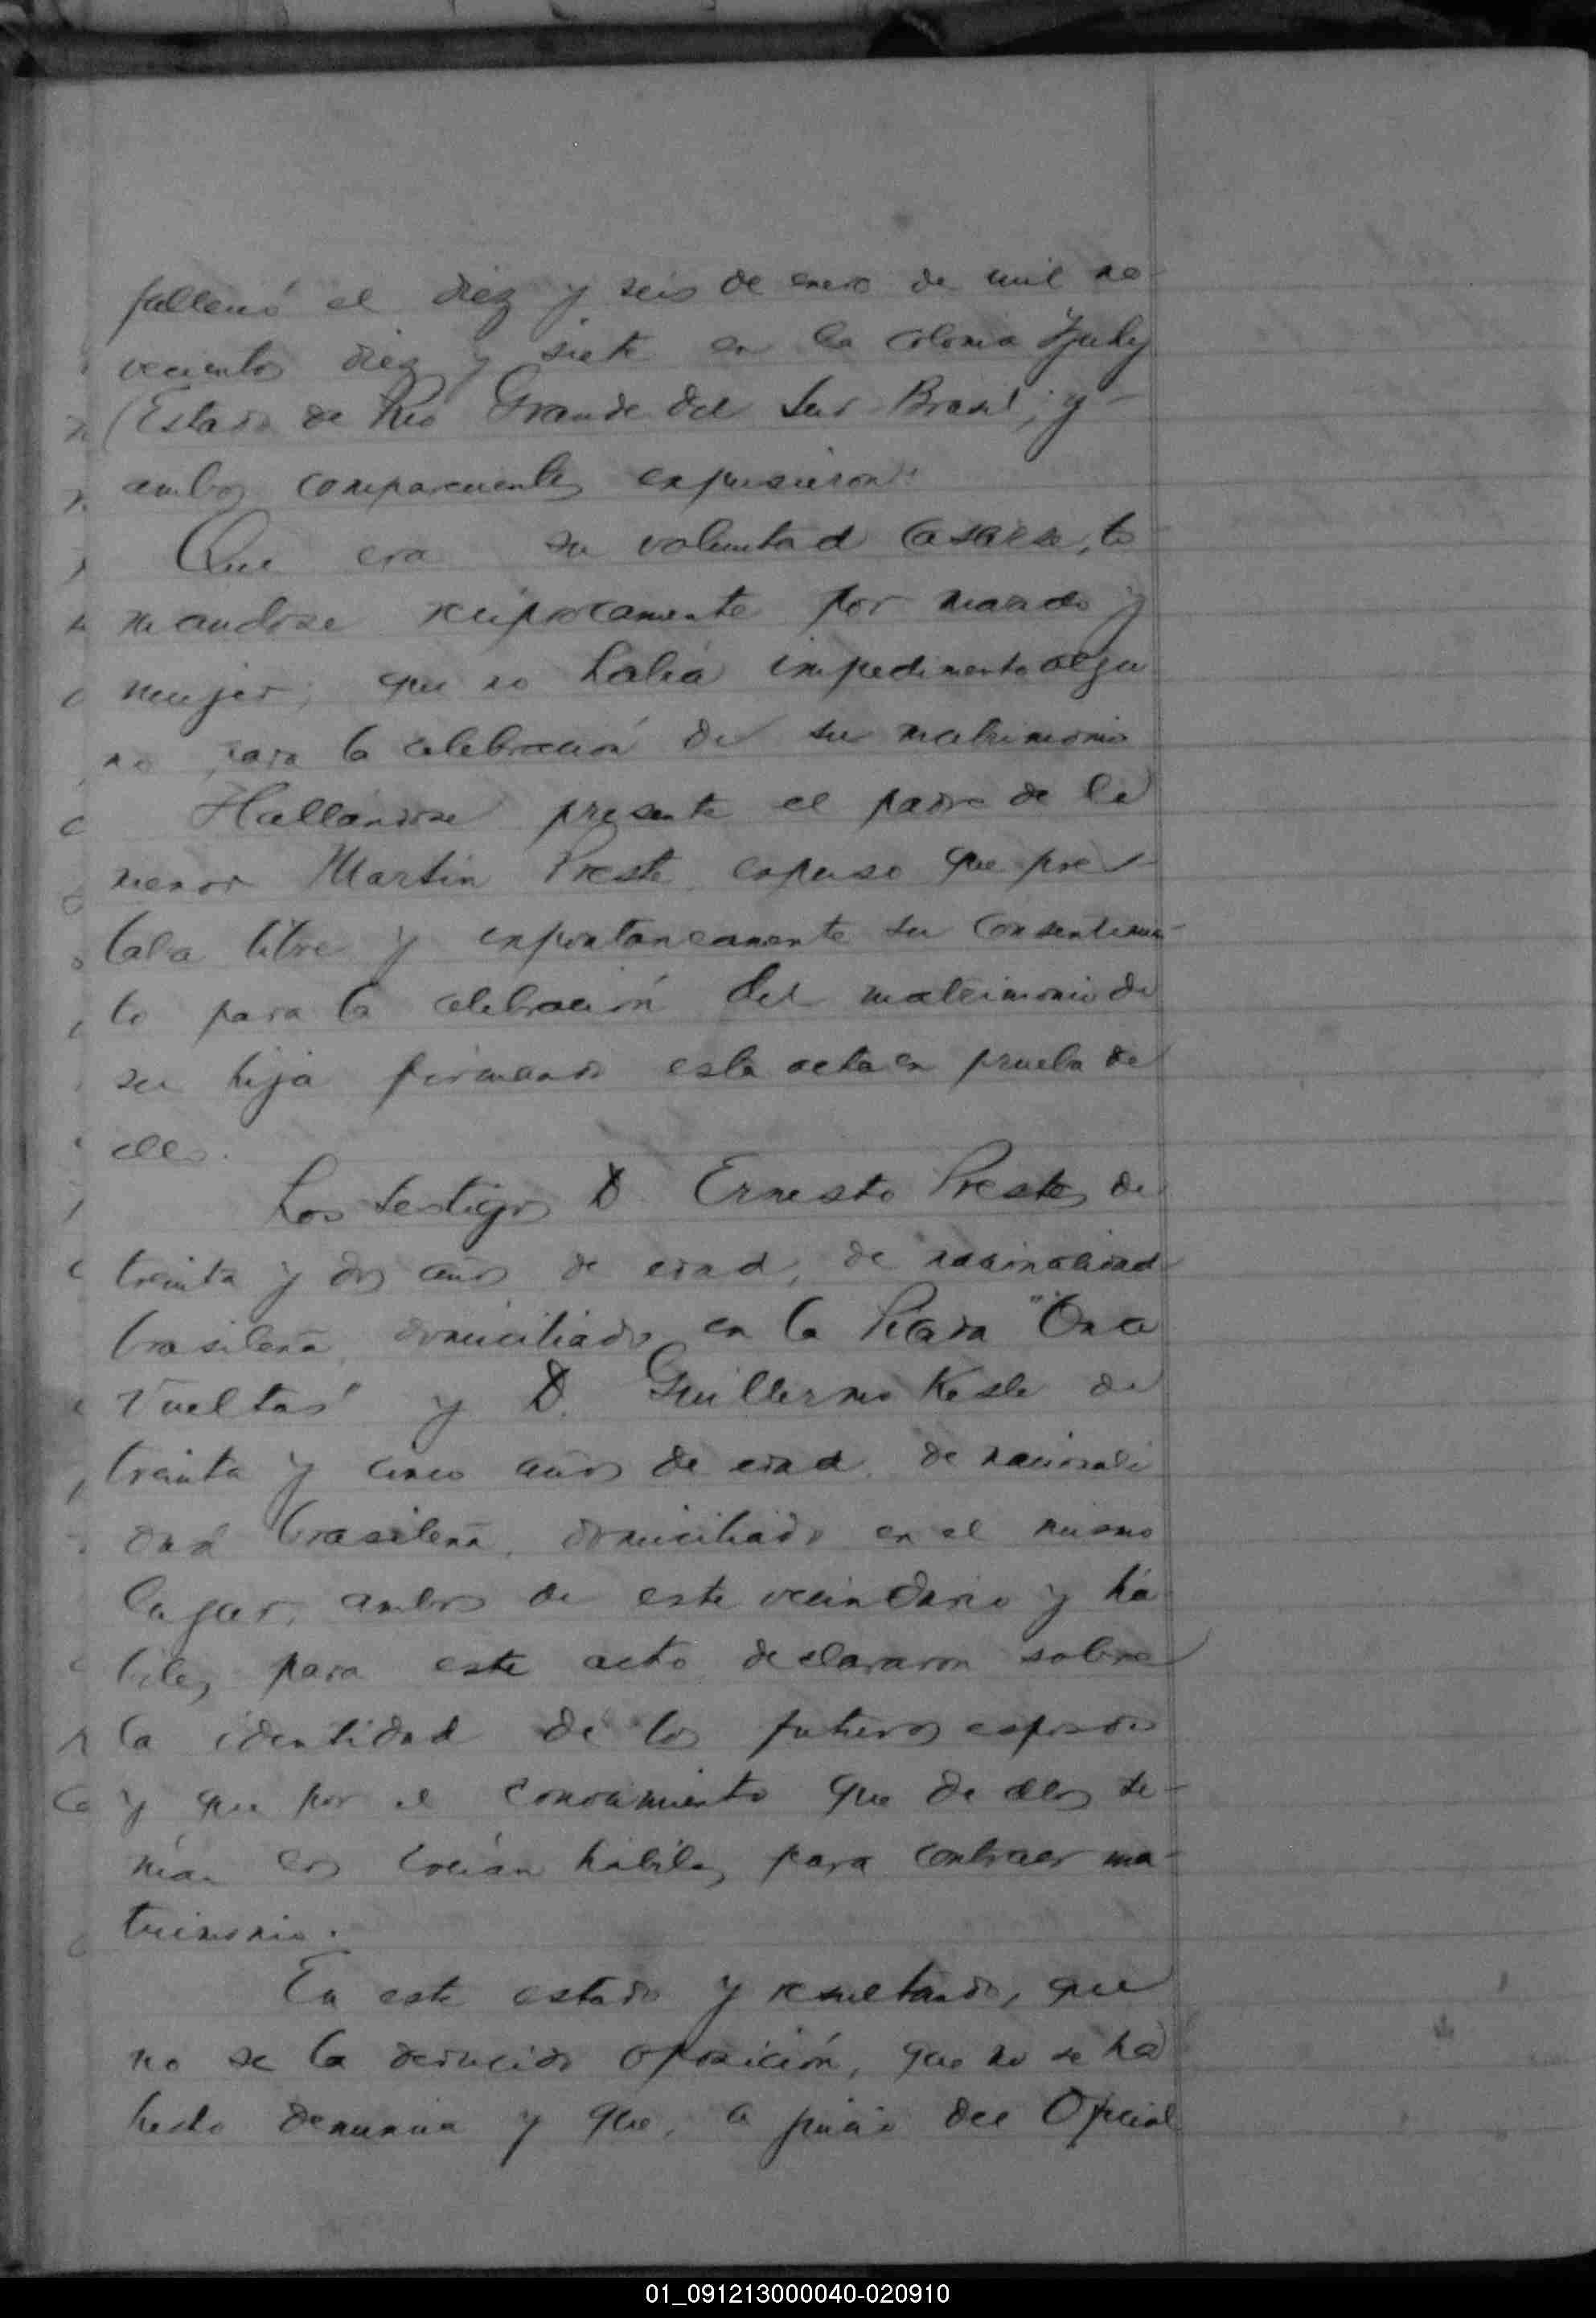 falleció el diez y seis de enero de mil no-
vecientos diez y siete en la colonia Yjuhy
(Estado de Rio Grande del Sur Brasil, y-
ambos comparecientes expusieron:
Que era su voluntad casarse, to-
mandose reciprocamente por marido y
mujer; que no había impedimento algu
no para la celebración de su matrimonio
Hallandose presente el padre de la
menor Martin Preste expuso que pres-
taba libre y espontaneamente su consentimien-
to para la celebración del matrimonio de
su hija firmando esta acta en prueba de
ello.
Los testigos D. Ernesto Prestes de
treinta y dos años de edad, de nacionalidad
brasileña, domiciliado en la Picada "Once
Vueltas" y D. Guillermo Kesle de
treinta y cinco años de edad, de nacionali
dad brasileña, domiciliado en el mismo
lugar, ambos de este vecindario y há
biles para este acto declararon sobre
la identidad de los futuros esposos
y que por el conocimiento que de ellos te-
nían los creían hábiles para contraer ma-
trimonio.
En este estado y resultando, que
no se ha deducido oposición, que no se ha
hecho denuncia y que, a juicio del Oficial
01_091213000040-020910